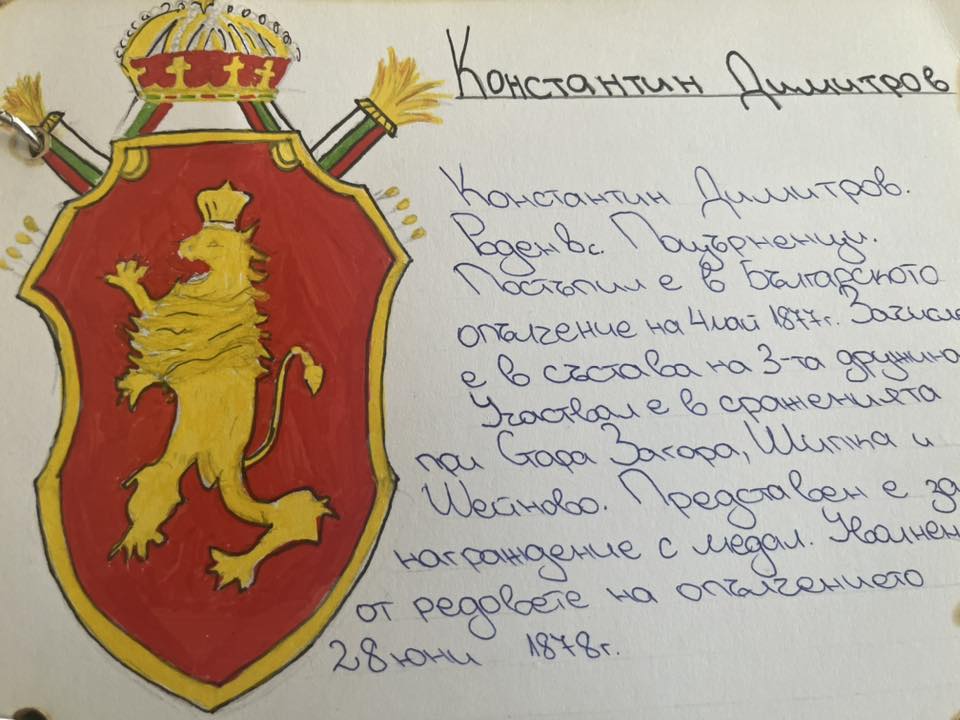 Константин Димитров
Константин Димитров.
Роден в с. Пащърненци.
Постъпил е в Българското
опълчение на 4 май 1877г. Зачисле
е в състава на 3-та дружина
Участвал е в сраженията
при Стара Загора, Шипка и
Шейново. Представен е за
награждение с медал. Уволнен
от редовете на опълчението
28 юни 1878г.